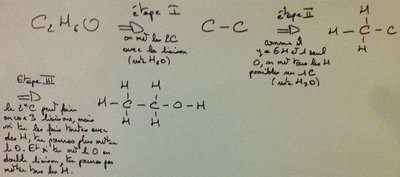 C₂H₆O
étape I
on met les 2C
avec la liaison
(reste H₆O)
C–C
étape II
comme il
y a 6H et 1 seul
O, on met tous les H
possibles sur 1C
(reste H₃O)
H
H–C–C
H
Etape III
le 2ᵉ C peut faire
encore 3 liaisons, mais
si tu les fais toutes avec
des H, tu pourras plus mettre
le O. Et si tu met le O en
double liaison, tu pourras pas
mettre tous les H.
H H
H–C–C–O–H
H H